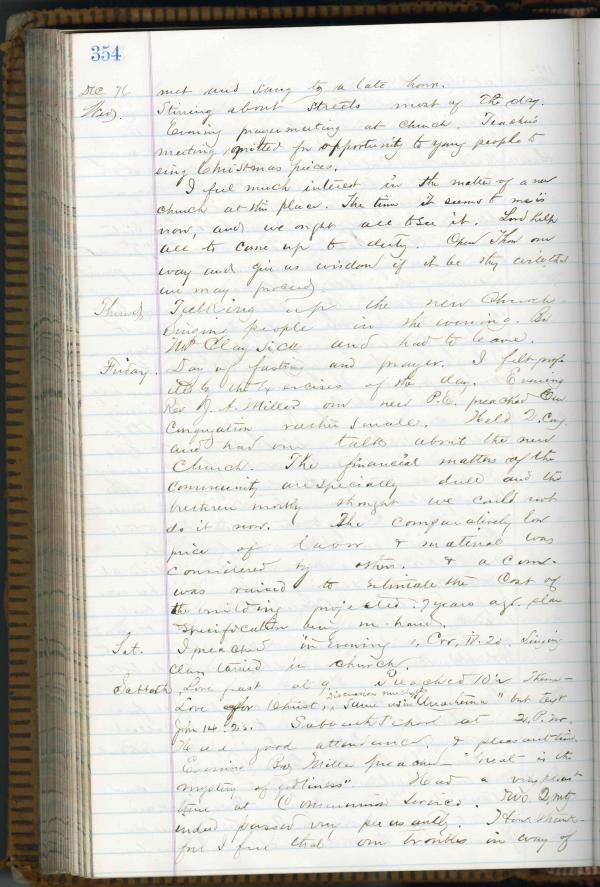 354
Dec 76 met and sang to a late hour.
Wed. Stirring about streets most of the day.
Evening prayermeeting at church. Teachers
meeting omitted for opportunity to young people to
sing Christmas pieces.
I feel much interest in the matter of a new
church at this place. The time it seems to me is
now, and we ought all to see it. Lord help
all to come up to duty. Open Thou our
way and give us wisdom if it be thy will that
we may proceed.
Thursd. Talking up the new church
Singing people in the evening. Bro
Clay sick and had to leave.
Friday. Day of fasting and prayer. I felt prof-
by the exercises of the day. Evening
Rev J. A. Miller our new P.E. preached Our
Congregation rather small. Held Q. Conf.
and had our talk about the new
Church. The financial matters of the
Community are specially dull and the
brethren mostly thought we could not
do it now. The comparatively low
price of labor & material was
considered by others. & a Com.
was raised to estimate the Cost of
the building projected 7 years ago. plan
& specification being on hand.
Sat. I preached in Evening 1, Cor, 11.20. Singing
class in church.
Sabbath, Love feast at 9. Preached 10½ Theme-
Love for Christ, discussion much of the same as in "Anathema" but text
John 14.23. Sabbath School at 2. P.M.
Had good attendance. & pleasant time.
Evening Bro Miller preached - "Great is the
mystery of godliness" Had a very pleasant
time at Communion Service. Two Q. mtg
ended passed very pleasantly. I have thank-
ful I feel that our troubles in way of